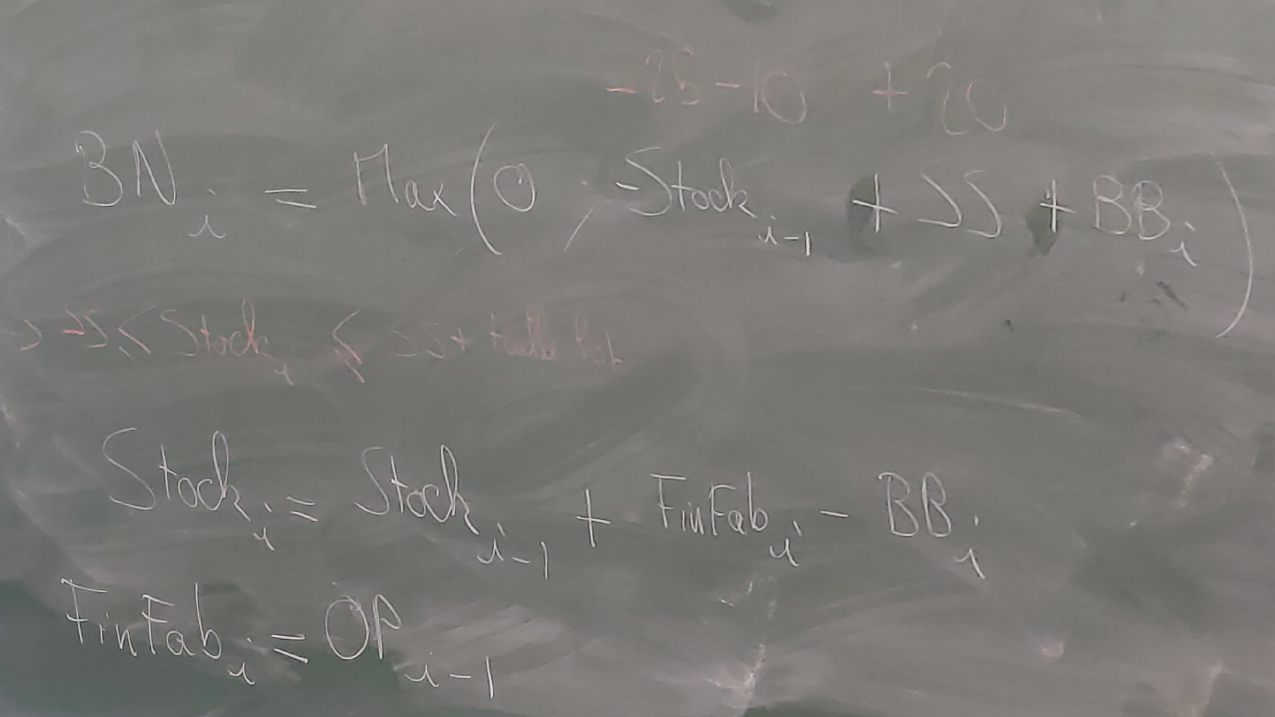 -25-10 +20
BN i = Max(0, -Stock i-1 + SS + BB i)
≤ Stock i ≤ SS+ taille lot
Stock i = Stock i-1 + FinFab i - BB i
FinFab i = OP i-1